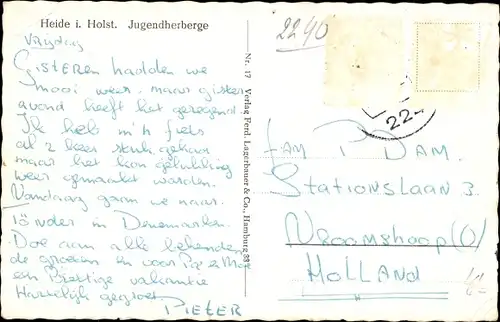 Heide i. Holst. Jugendherberge
Vrijdag
Gisteren hadden we
mooi weer, maar gister
avond heeft het geregend.
Ik heb m'n fiets
al 2 keer stuk gehad
maar het kon gelukkig
weer gemaakt worden.
Vandaag gaan we naar
Tönder in Denemarken.
Doe aan alle bekenden
de groeten en voor Pa en Moe
een Prettige vakantie
Hartelijk gegroet
PIETER
Nr. 17 Verlag Ferd. Lagerbauer & Co., Hamburg 33
2240
22-
FAM P DAM.
Stationslaan 3
Vroomshoop (O)
HOLLAND